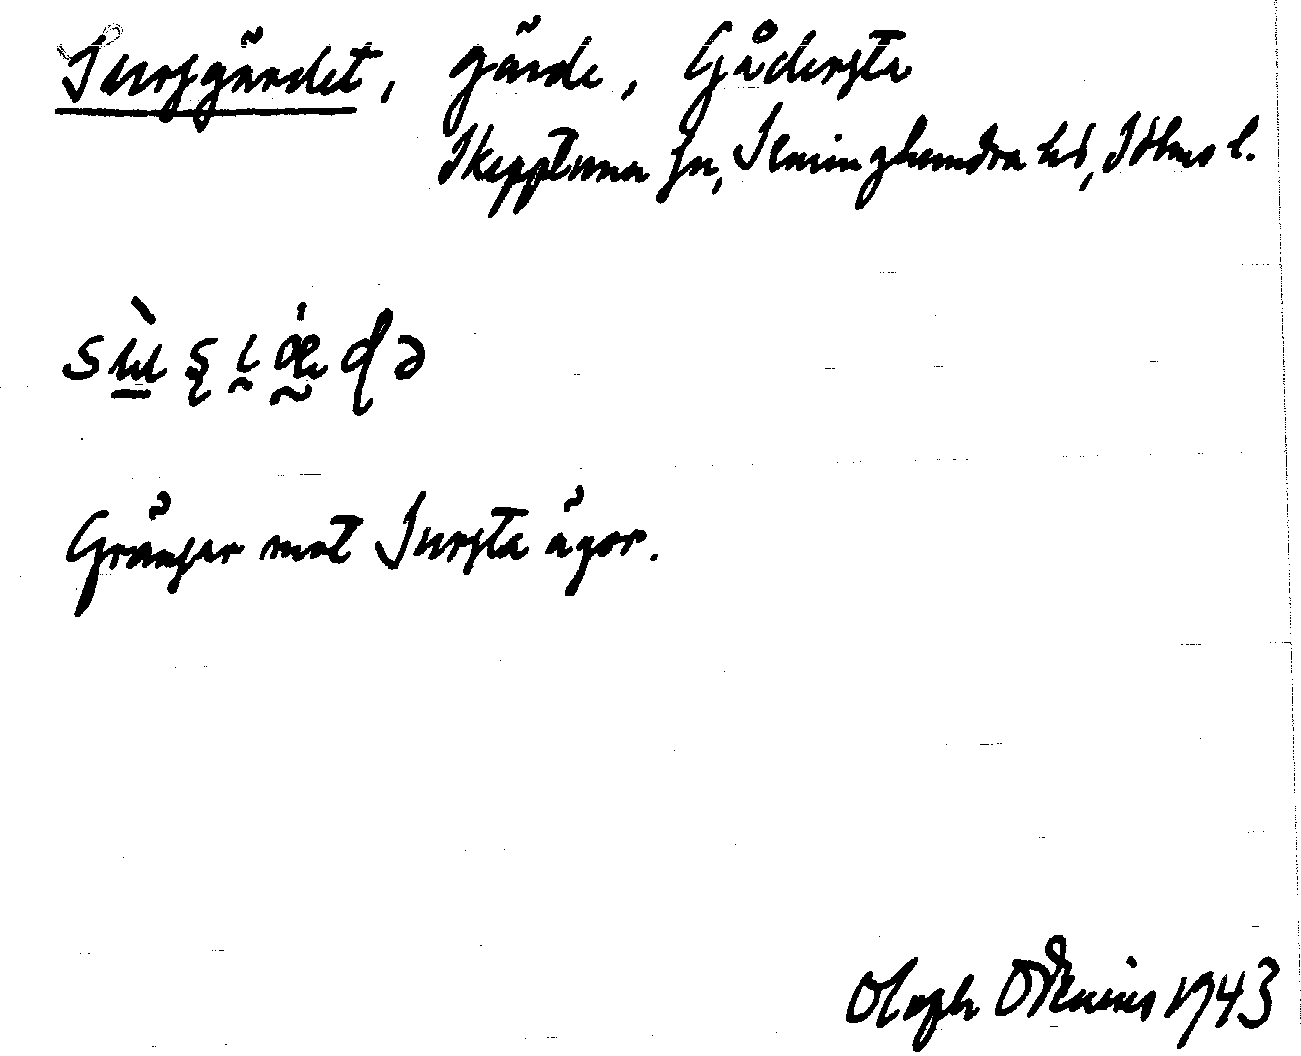 Sursgärdet, gärde, Gådersta
Skepptuna sn, Seminghundra hd, Sthms l.
Gränsar mot Sursta ägor.
Olof Odenius 1943